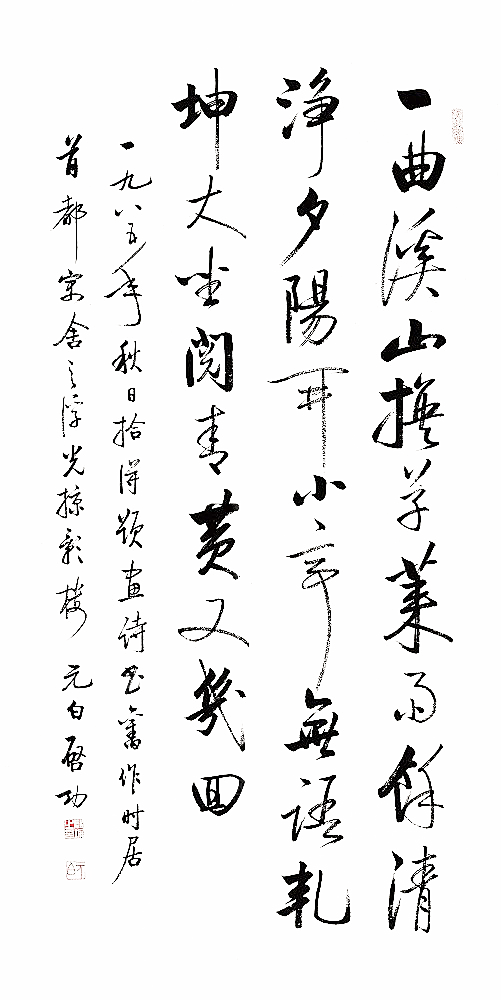 一曲溪山換草萊雨餘清
淨夕陽開小亭無語乾
坤大坐閱青黃又幾回
一九八五年秋日拾得題畫詩書舊作时居
首都寓舍之浮光掠影樓 元白啓功